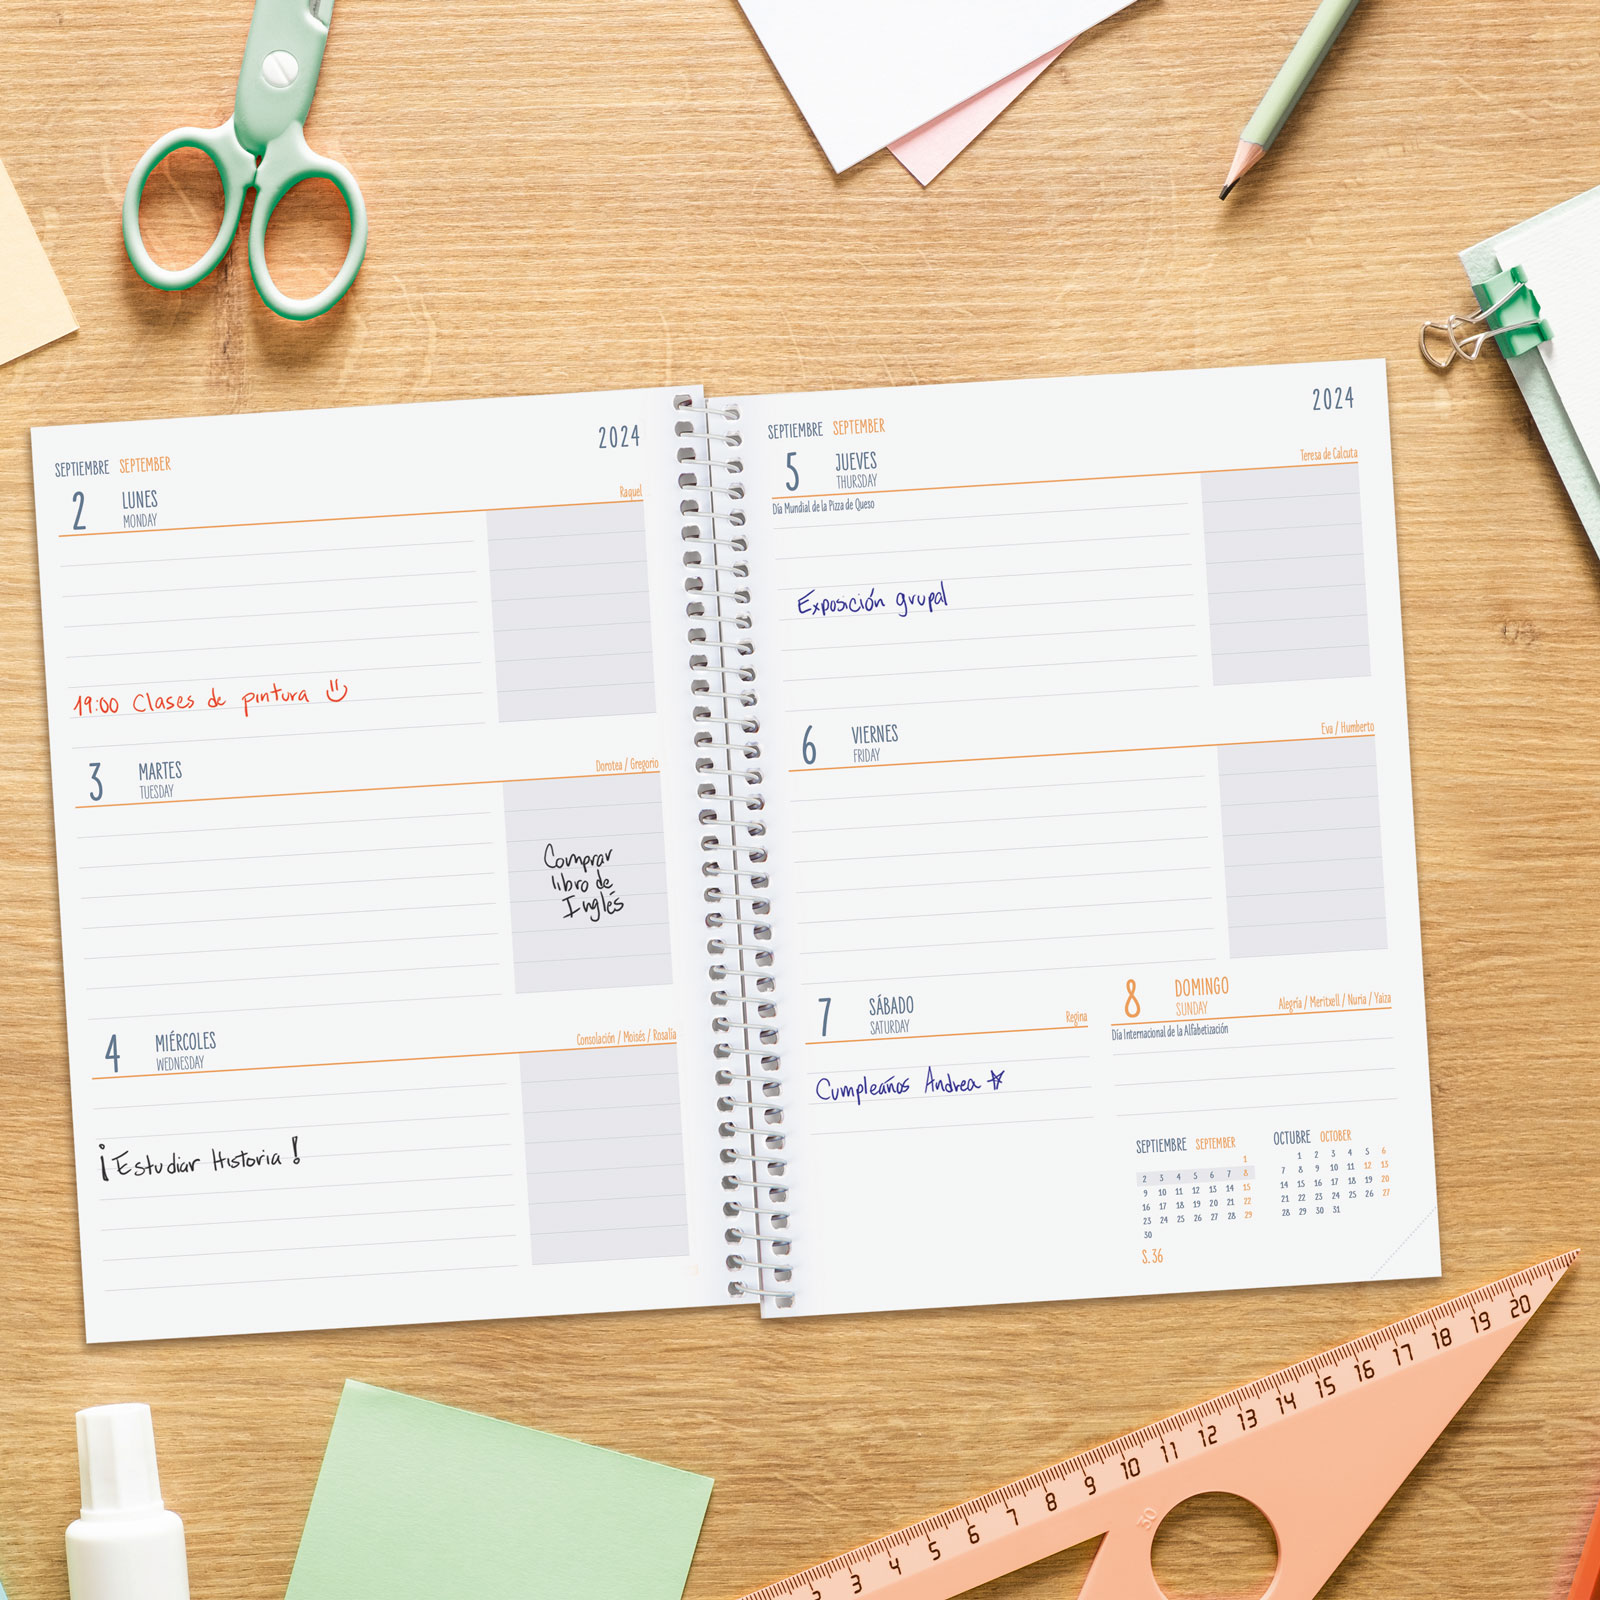 2024
SEPTIEMBRE SEPTEMBER
2 LUNES
MONDAY
Raquel
19:00 Clases de pintura
3 MARTES
TUESDAY
Dorotea / Gregorio
Comprar
libro de
Inglés
4 MIÉRCOLES
WEDNESDAY
Consolación / Moisés / Rosalía
¡Estudiar Historia!
2024
SEPTIEMBRE SEPTEMBER
5 JUEVES
THURSDAY
Teresa de Calcuta
Día Mundial de la Pizza de Queso
Exposición grupal
6 VIERNES
FRIDAY
Eva / Humberto
7 SÁBADO
SATURDAY
Regina
Cumpleaños Andrea
8 DOMINGO
SUNDAY
Alegría / Meritxell / Nuria / Yaiza
Día Internacional de la Alfabetización
SEPTIEMBRE SEPTEMBER
1
2 3 4 5 6 7 8
9 10 11 12 13 14 15
16 17 18 19 20 21 22
23 24 25 26 27 28 29
30
S. 36
OCTUBRE OCTOBER
1 2 3 4 5 6
7 8 9 10 11 12 13
14 15 16 17 18 19 20
21 22 23 24 25 26 27
28 29 30 31
2 3 4 5 6 7 8 9 10 11 12 13 14 15 16 17 18 19 20
30